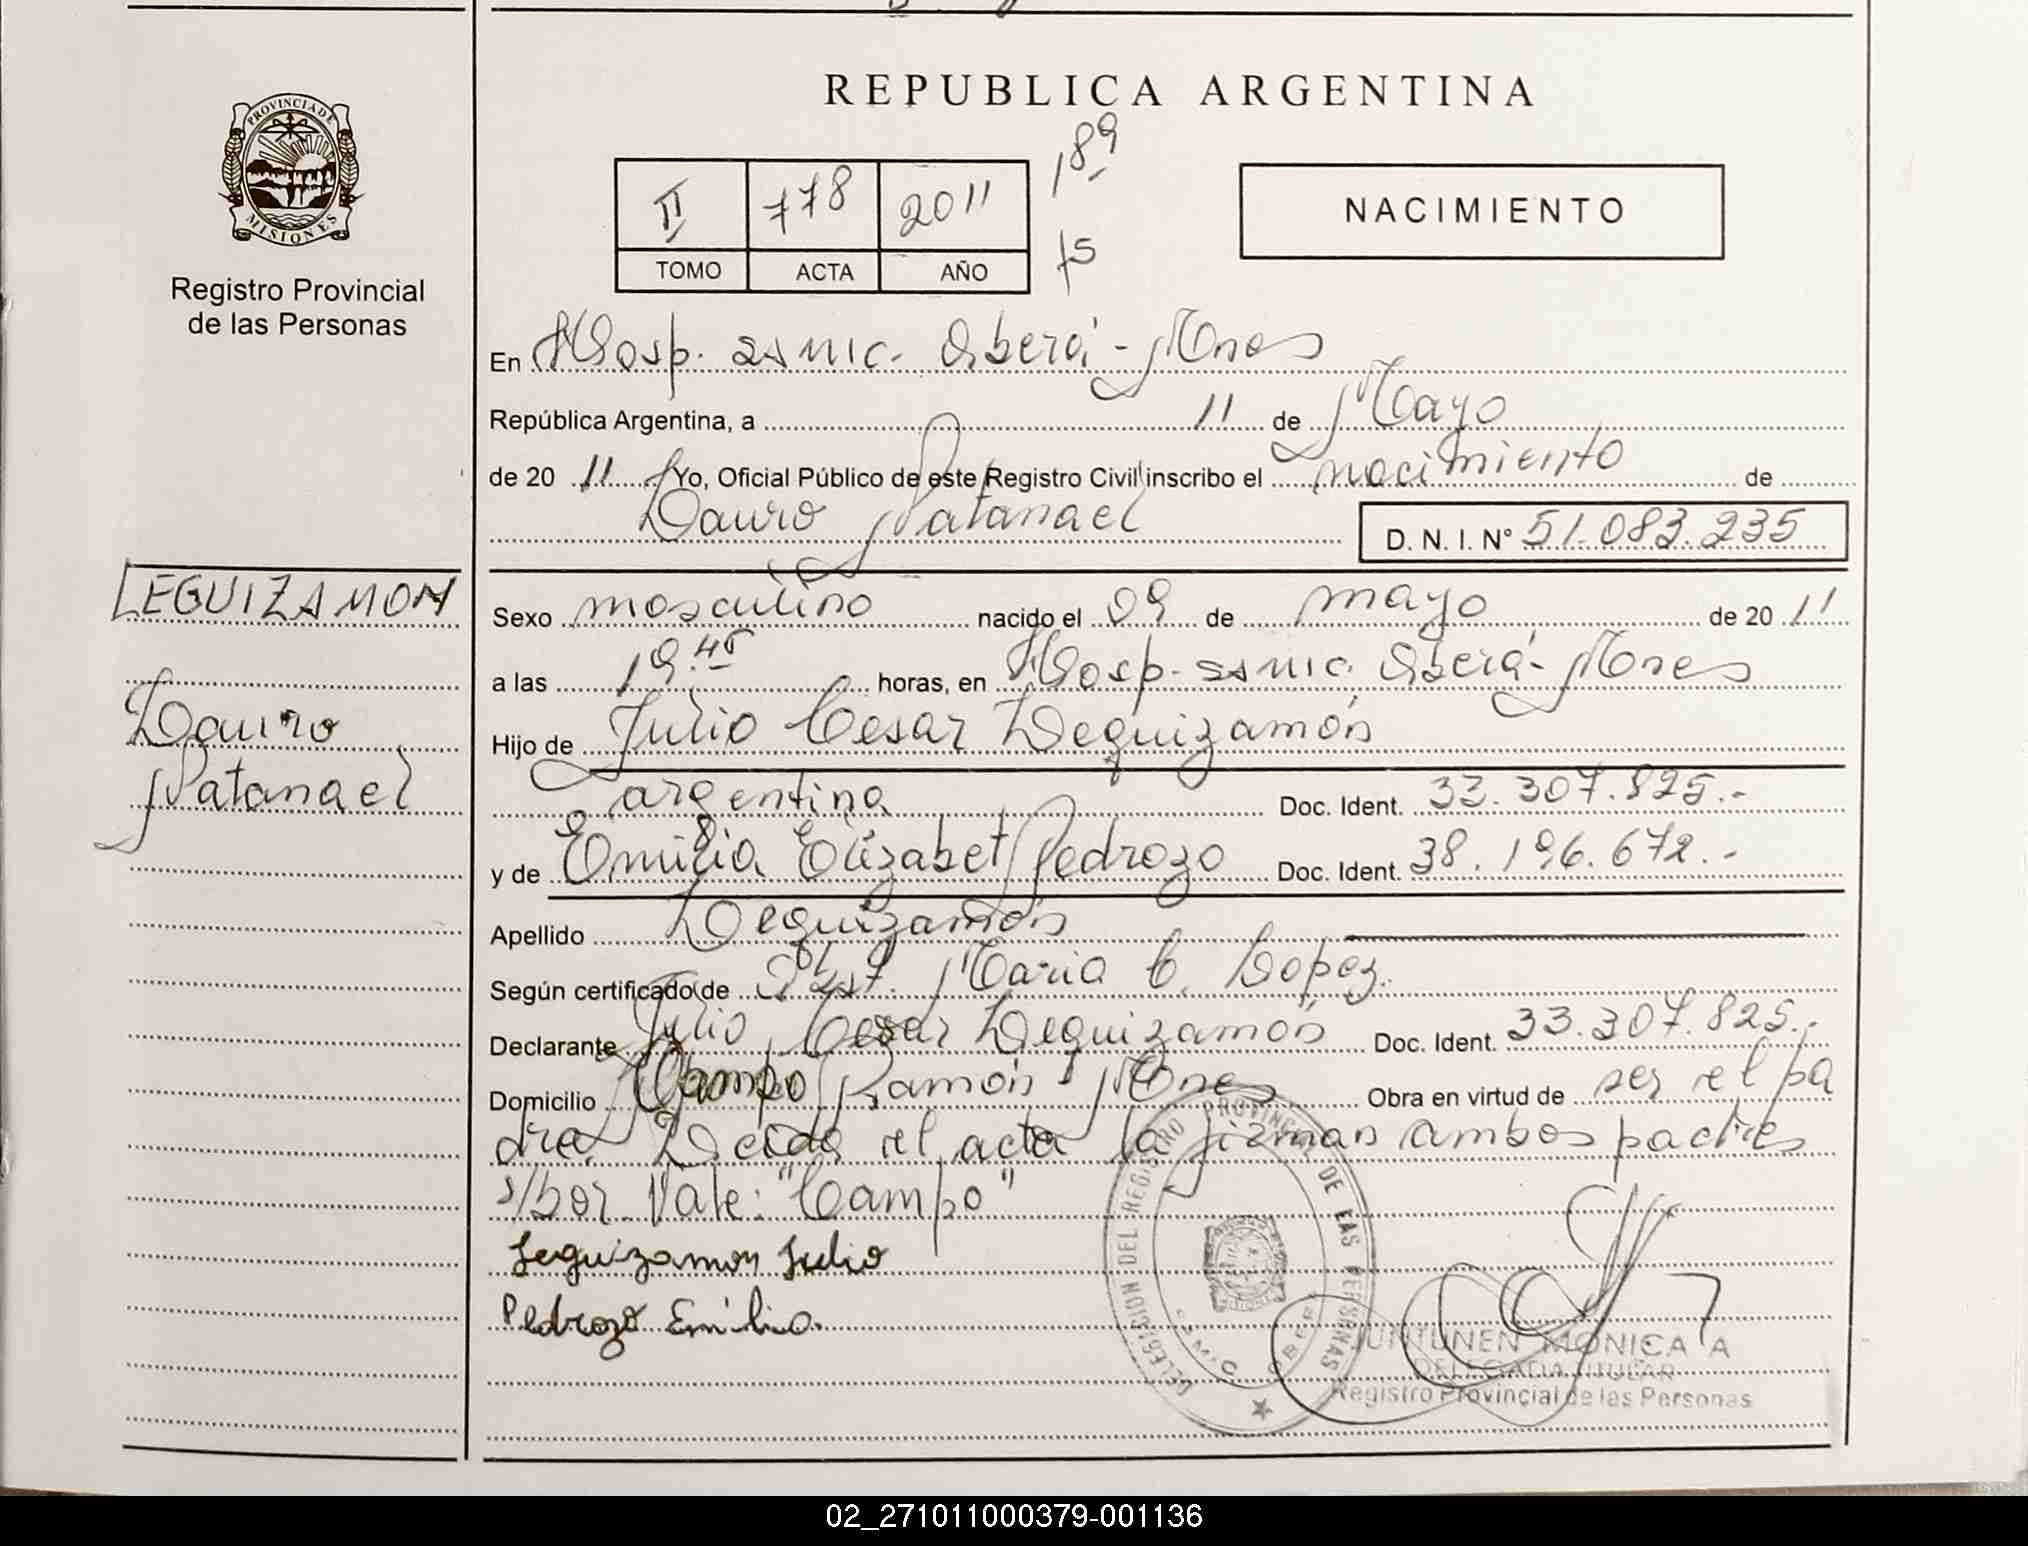 REPUBLICA ARGENTINA
PROVINCIA DE
MISIONES
Registro Provincial
de las Personas
II 778 2011
TOMO ACTA AÑO
189
75
NACIMIENTO
En Hosp. samic. Oberá - Mnes
República Argentina, a 11 de Mayo
de 20 11 Yo, Oficial Público de este Registro Civil inscribo el nacimiento de
Lauro Natanael
D. N. I. N° 51.083.235
LEGUIZAMON
Lauro
Natanael
Sexo masculino nacido el 09 de mayo de 20 11
a las 19.45 horas, en Hosp. samic. Oberá - Mnes
Hijo de Julio Cesar Leguizamón
argentina Doc. Ident. 33.307.825.-
y de Emilia Elizabet Pedrozo Doc. Ident. 38.196.672.-
Apellido Leguizamón
Según certificado de Obst. Maria C. Lopez.
Declarante Julio Cesar Leguizamón Doc. Ident. 33.307.825.-
Domicilio Campo Ramón Mnes Obra en virtud de ser el pa
dre. Leida el acta la firman ambos padres
s/bor. Vale: "Campo"
Leguizamon Julio
Pedrozo Emilia.
DELEGACION DEL REGISTRO PROVINCIAL DE LAS PERSONAS
JUNTUNEN MONICA A
DELEGADA TITULAR
Registro Provincial de las Personas
02_271011000379-001136